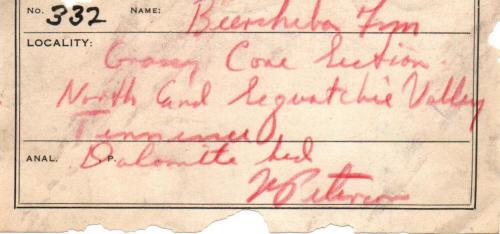 No. 332 NAME: Beersheba Fm
LOCALITY:
Grassy Cove Section.
North End Sequatchie Valley
Tennessee
ANAL. P. Dolomite bed
Peterson